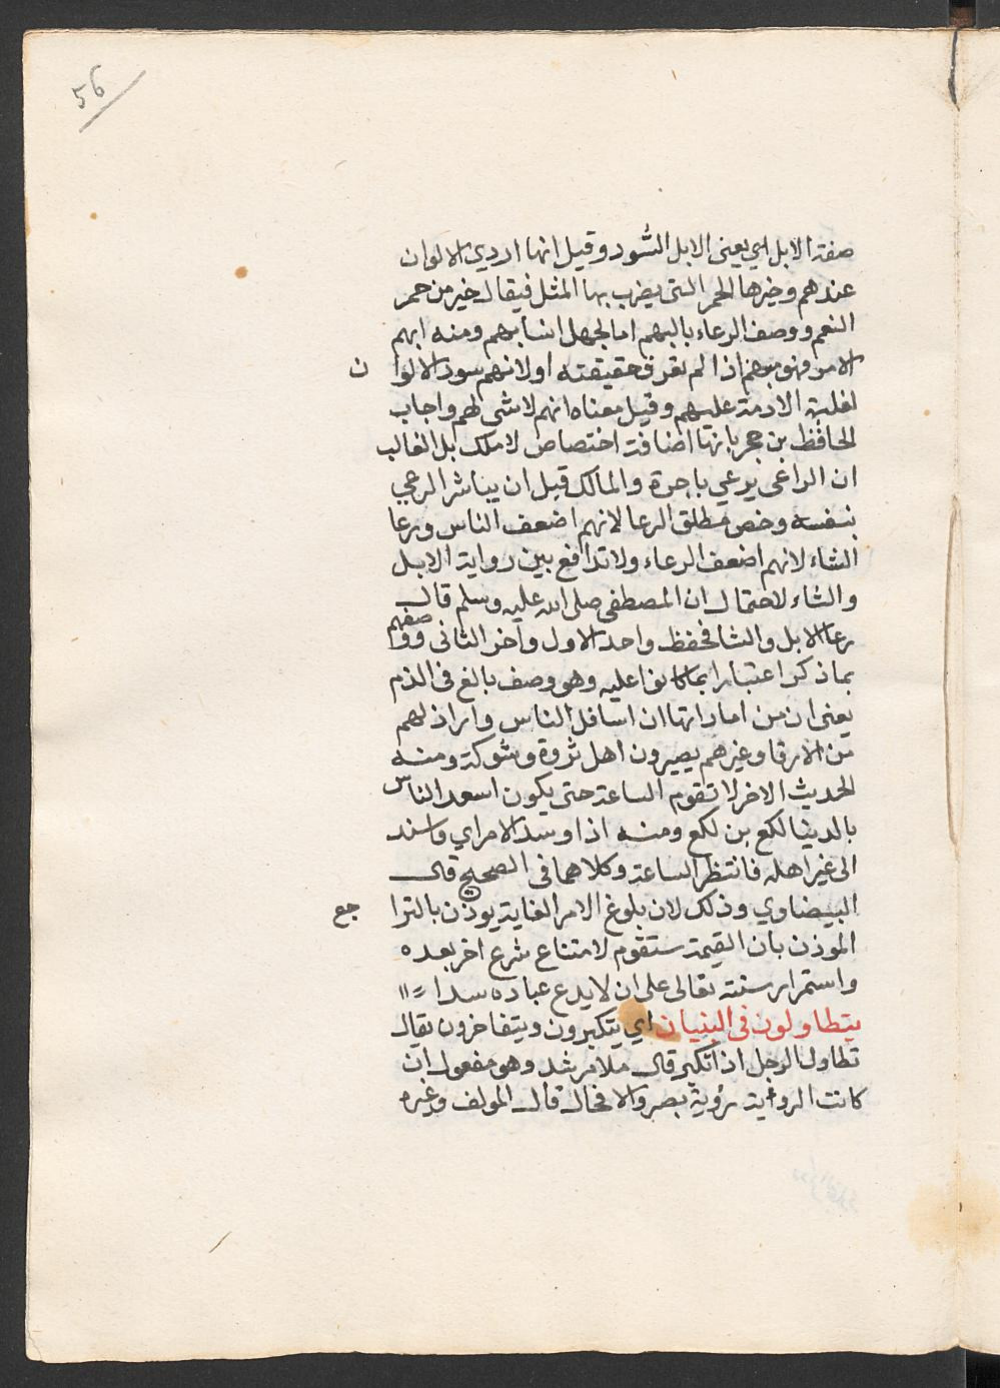 56
صفة الابل اي يعني الابل السُّود وقيل انها اردي الالوان
عندهم وخيرها الحمر التي يضرب بها المثل فيقال خير من حمر
النعم ووصف الرعاء بالبهم اما لجهل انسابهم ومنه ابهم
الامر فهو مبهم اذا لم تعرف حقيقته او لانهم سود الالوا ن
لغلبة الادمة عليهم وقيل معناه انهم لا شي لهم واجاب
الحافظ بن حجر بانها اضافة اختصاص لا ملك بل الغالب
ان الراعي يرعي باجرة والمالك قيل ان يباشر الرعي
بنفسه وخص مطلق الرعا لانهم اضعف الناس ورعا
الشاء لانهم اضعف الرعاء ولا تدافع بين رواية الابل
والشاء لاحتمال ان المصطفي صلى الله عليه وسلم قال
رعا الابل والشا فحفظ واحد الاول واخر الثاني ووصفهم
بما ذكر اعتبارا بما كانوا عليه وهو وصف بالغ في الذم
يعني ان من اماراتها ان اسافل الناس واراذلهم
من الارقا وغيرهم يصيرون اهل ثروة وشوكة ومنه
الحديث الاخر لا تقوم الساعة حتى يكون اسعد الناس
بالدينا لكع بن لكع ومنه اذا وسد الامر اي واسند
الى غير اهله فانتظر الساعة وكلاهما في الصحيح قال
البيضاوي وذلك لان بلوغ الامر الغاية يوذن بالترا جع
الموذن بان القيمة ستقوم لامتناع شرع اخر بعده
واستمرار سنته تعالى على ان لا يدع عباده سدا
يتطاولون في البنيان اي يتكبرون ويتفاخرون يقال
تطاول الرجل اذا تكبر قال ملا مرشد وهو مفعول ان
كانت الروية رؤية بصر والا فحال قال المولف وغيره